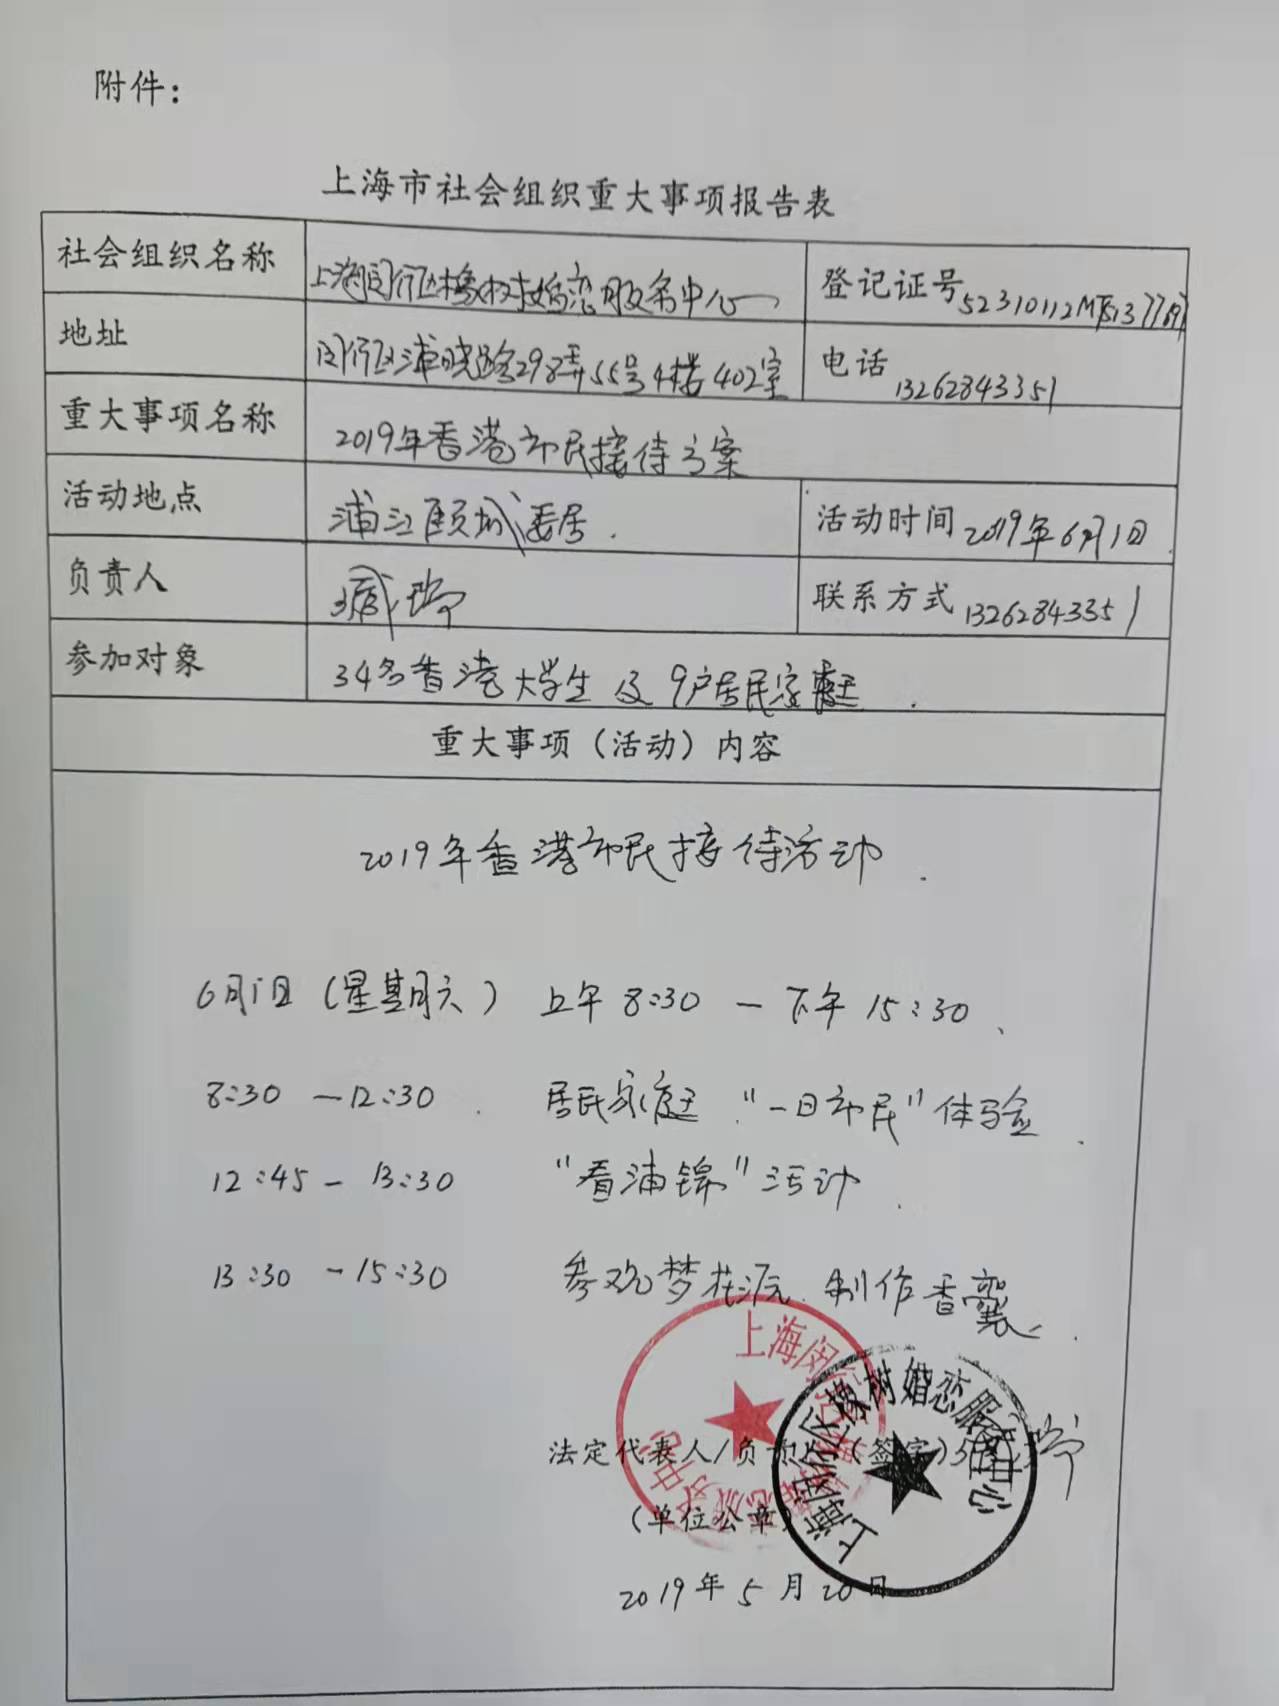 附件：
上海市社会组织重大事项报告表
社会组织名称 上海闵行区橡树婚恋服务中心 登记证号
地址 闵行区浦晓路298弄55号4楼402室 电话 13262843351
重大事项名称 2019年香港市民接待方案
活动地点 浦江颐城居委 活动时间 2019年6月1日
负责人 臧瑞 联系方式 13262843351
参加对象 34名香港大学生及9户居民家庭.
重大事项（活动）内容
2019年香港市民接待活动.
6月1日（星期六） 上午8:30 — 下午15:30、
8:30 — 12:30 . 居民家庭"一日市民"体验.
12:45 — 13:30 "看浦锦"活动.
13:30 — 15:30 参观梦花源.制作香囊.
上海闵行区橡树婚恋服务中心
上海闵行区橡树婚恋服务中心
法定代表人/负责人（签字）
（单位公章）
2019年5月20日